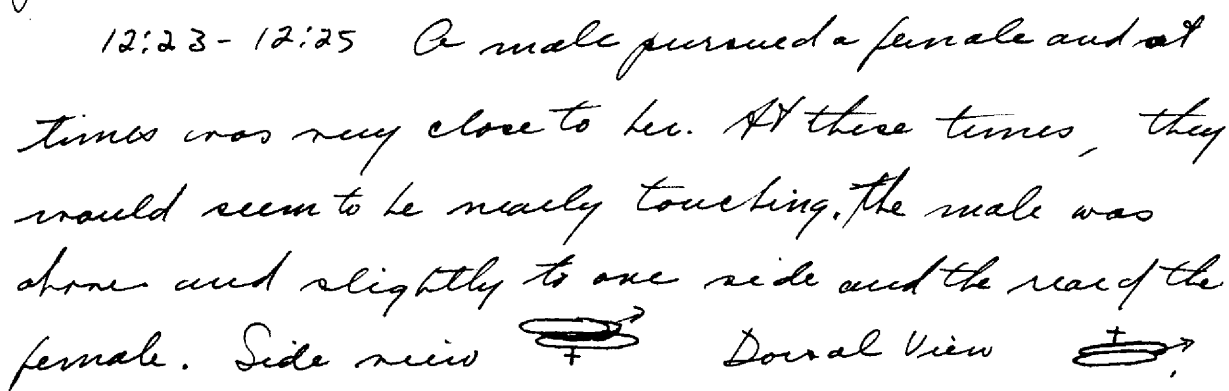 12:23 - 12:25 A male pursued a female and at
times was very close to her. At these times, they
would seem to be nearly touching. The male was
above and slightly to one side and the rear of the
female. Side view Dorsal View